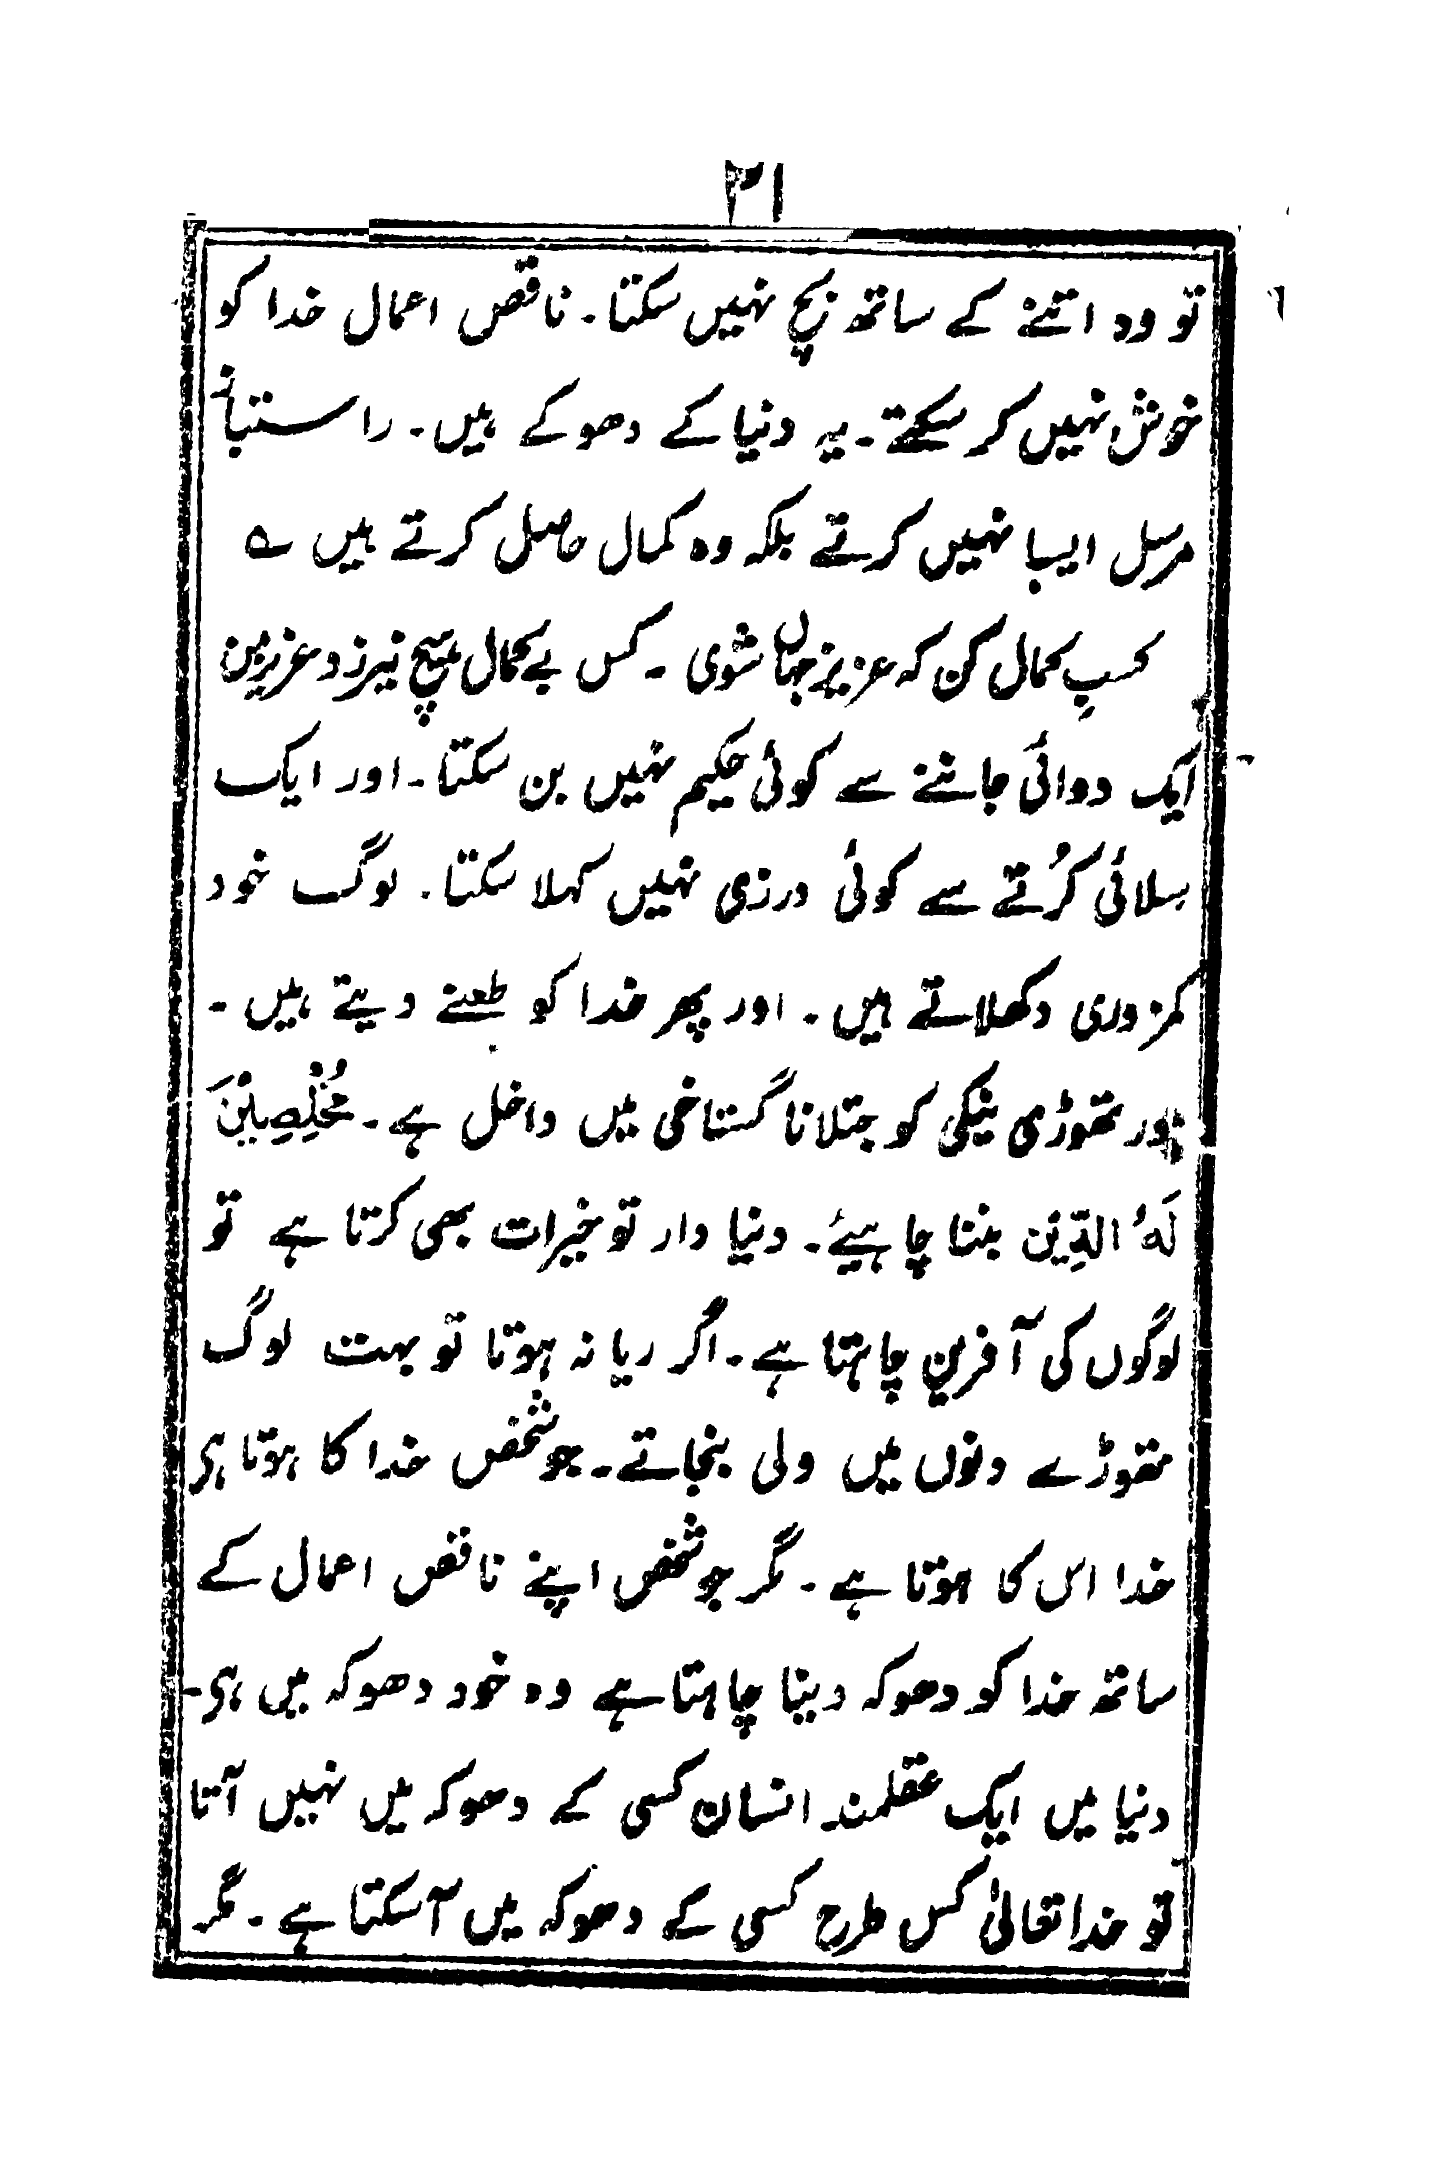 ۲۱
تو وہ اتنے کے ساتھ بچ نہیں سکتا۔ ناقص اعمال خدا کو
خوش نہیں کر سکتے۔ یہ دنیا کے دھوکے ہیں۔ راستباز
مرسل ایسا نہیں کرتے بلکہ وہ کمال حاصل کرتے ہیں ؎
کسبِ کمال کن کہ عزیز جہاں شوی ۔ کس بے کمال ہیچ نیرزد عزیز من
ایک دوائی جاننے سے کوئی حکیم نہیں بن سکتا۔ اور ایک
سلائی کرنے سے کوئی درزی نہیں کہلا سکتا۔ لوگ خود
کمزوری دکھلاتے ہیں۔ اور پھر خدا کو طعنے دیتے ہیں۔
اور تھوڑی نیکی کو جتلانا گستاخی میں داخل ہے۔ مُخْلِصِیْنَ
لَہُ الدِّیْن بننا چاہیئے۔ دنیا دار تو خیرات بھی کرتا ہے تو
لوگوں کی آفرین چاہتا ہے۔ اگر ریا نہ ہوتا تو بہت لوگ
تھوڑے دنوں میں ولی بنجاتے۔ جو شخص خدا کا ہوتا ہی
خدا اس کا ہوتا ہے۔ مگر جو شخص اپنے ناقص اعمال کے
ساتھ خدا کو دھوکہ دینا چاہتا ہے وہ خود دھوکہ میں ہی۔
دنیا میں ایک عقلمند انسان کسی کے دھوکہ میں نہیں آتا
تو خدا تعالیٰ کس طرح کسی کے دھوکہ میں آسکتا ہے۔ مگر